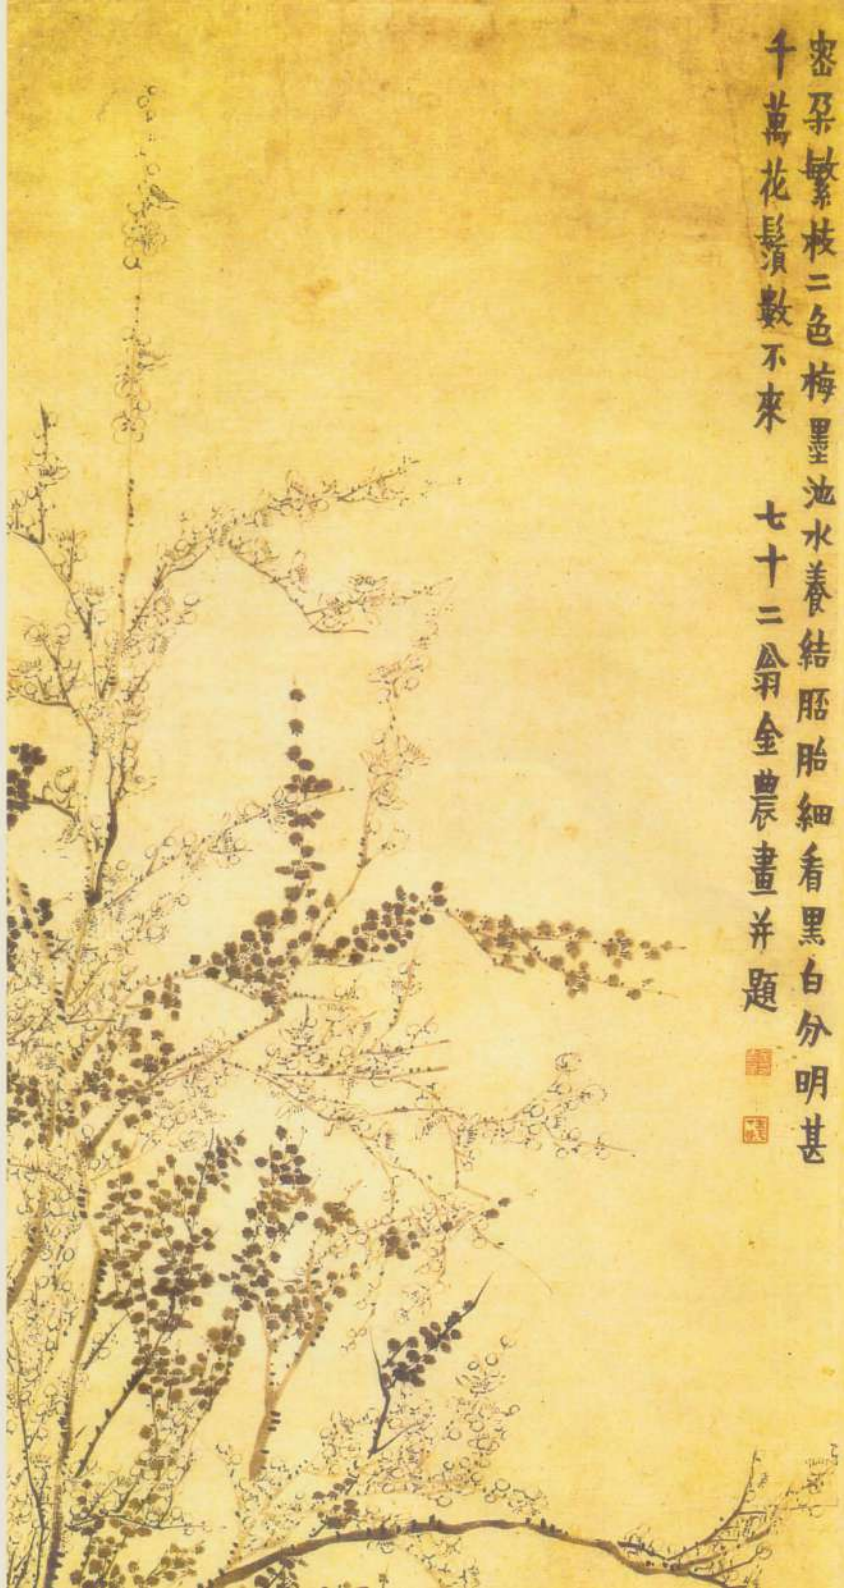 密朶繁枝二色梅墨池水養結胚胎細看黑白分明甚
千萬花鬚數不來 七十二翁金農畫并題